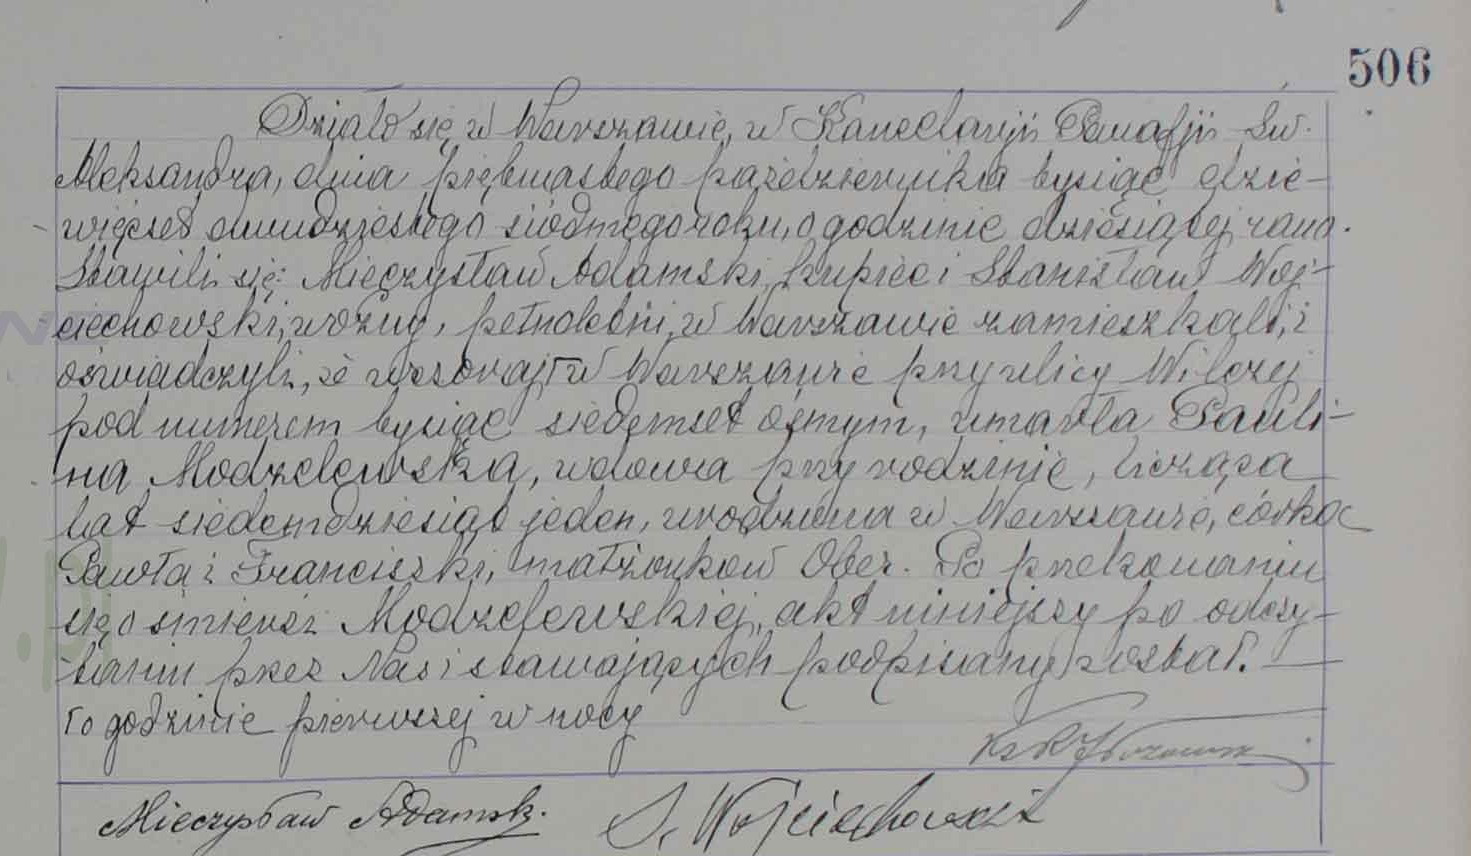 506
Działo się w Warszawie, w Kancelaryji Parafji Św.
Aleksandra, dnia piętnastego października tysiąc dzie-
więćset dwudziestego siódmego roku, o godzinie dziesiątej rano.
Stawili się: Mieczysław Adamski, kupiec i Stanisław Woj-
ciechowski, woźny, pełnoletni, w Warszawie zamieszkali, i
oświadczyli, że wczoraj w Warszawie przy ulicy Wilczej
pod numerem tysiąc siedemset ósmym, umarła Pauli-
na Modzelewska, wdowa przy rodzinie, licząca
lat siedemdziesiąt jeden, urodzona w Warszawie, córka
Pawła i Franciszki, małżonków Ober. Po przekonaniu
się o śmierci Modzelewskiej, akt niniejszy po odczy-
taniu przez Nas i stawających podpisany został.
To godzinie pierwszej w nocy
Mieczysław Adamski. S. Wojciechowski